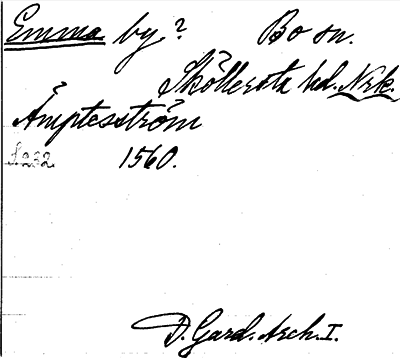 Emma by? Bo sn.
Sköllersta hd. Nrk.
Ämptesström
S. 232 1560.
D. Gard. Arch. I.